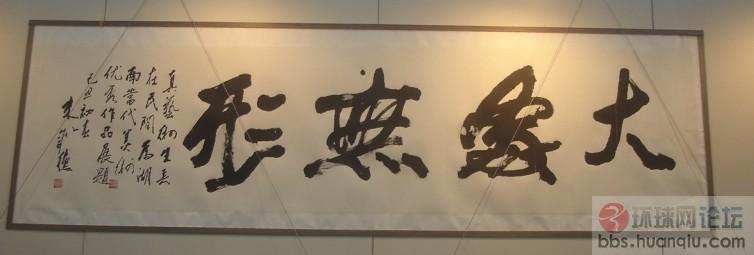 大象無形
真藝術生長
在民間為湖
南當代美術
優秀作品展題
己丑初春
环球网论坛
bbs.huanqiu.com